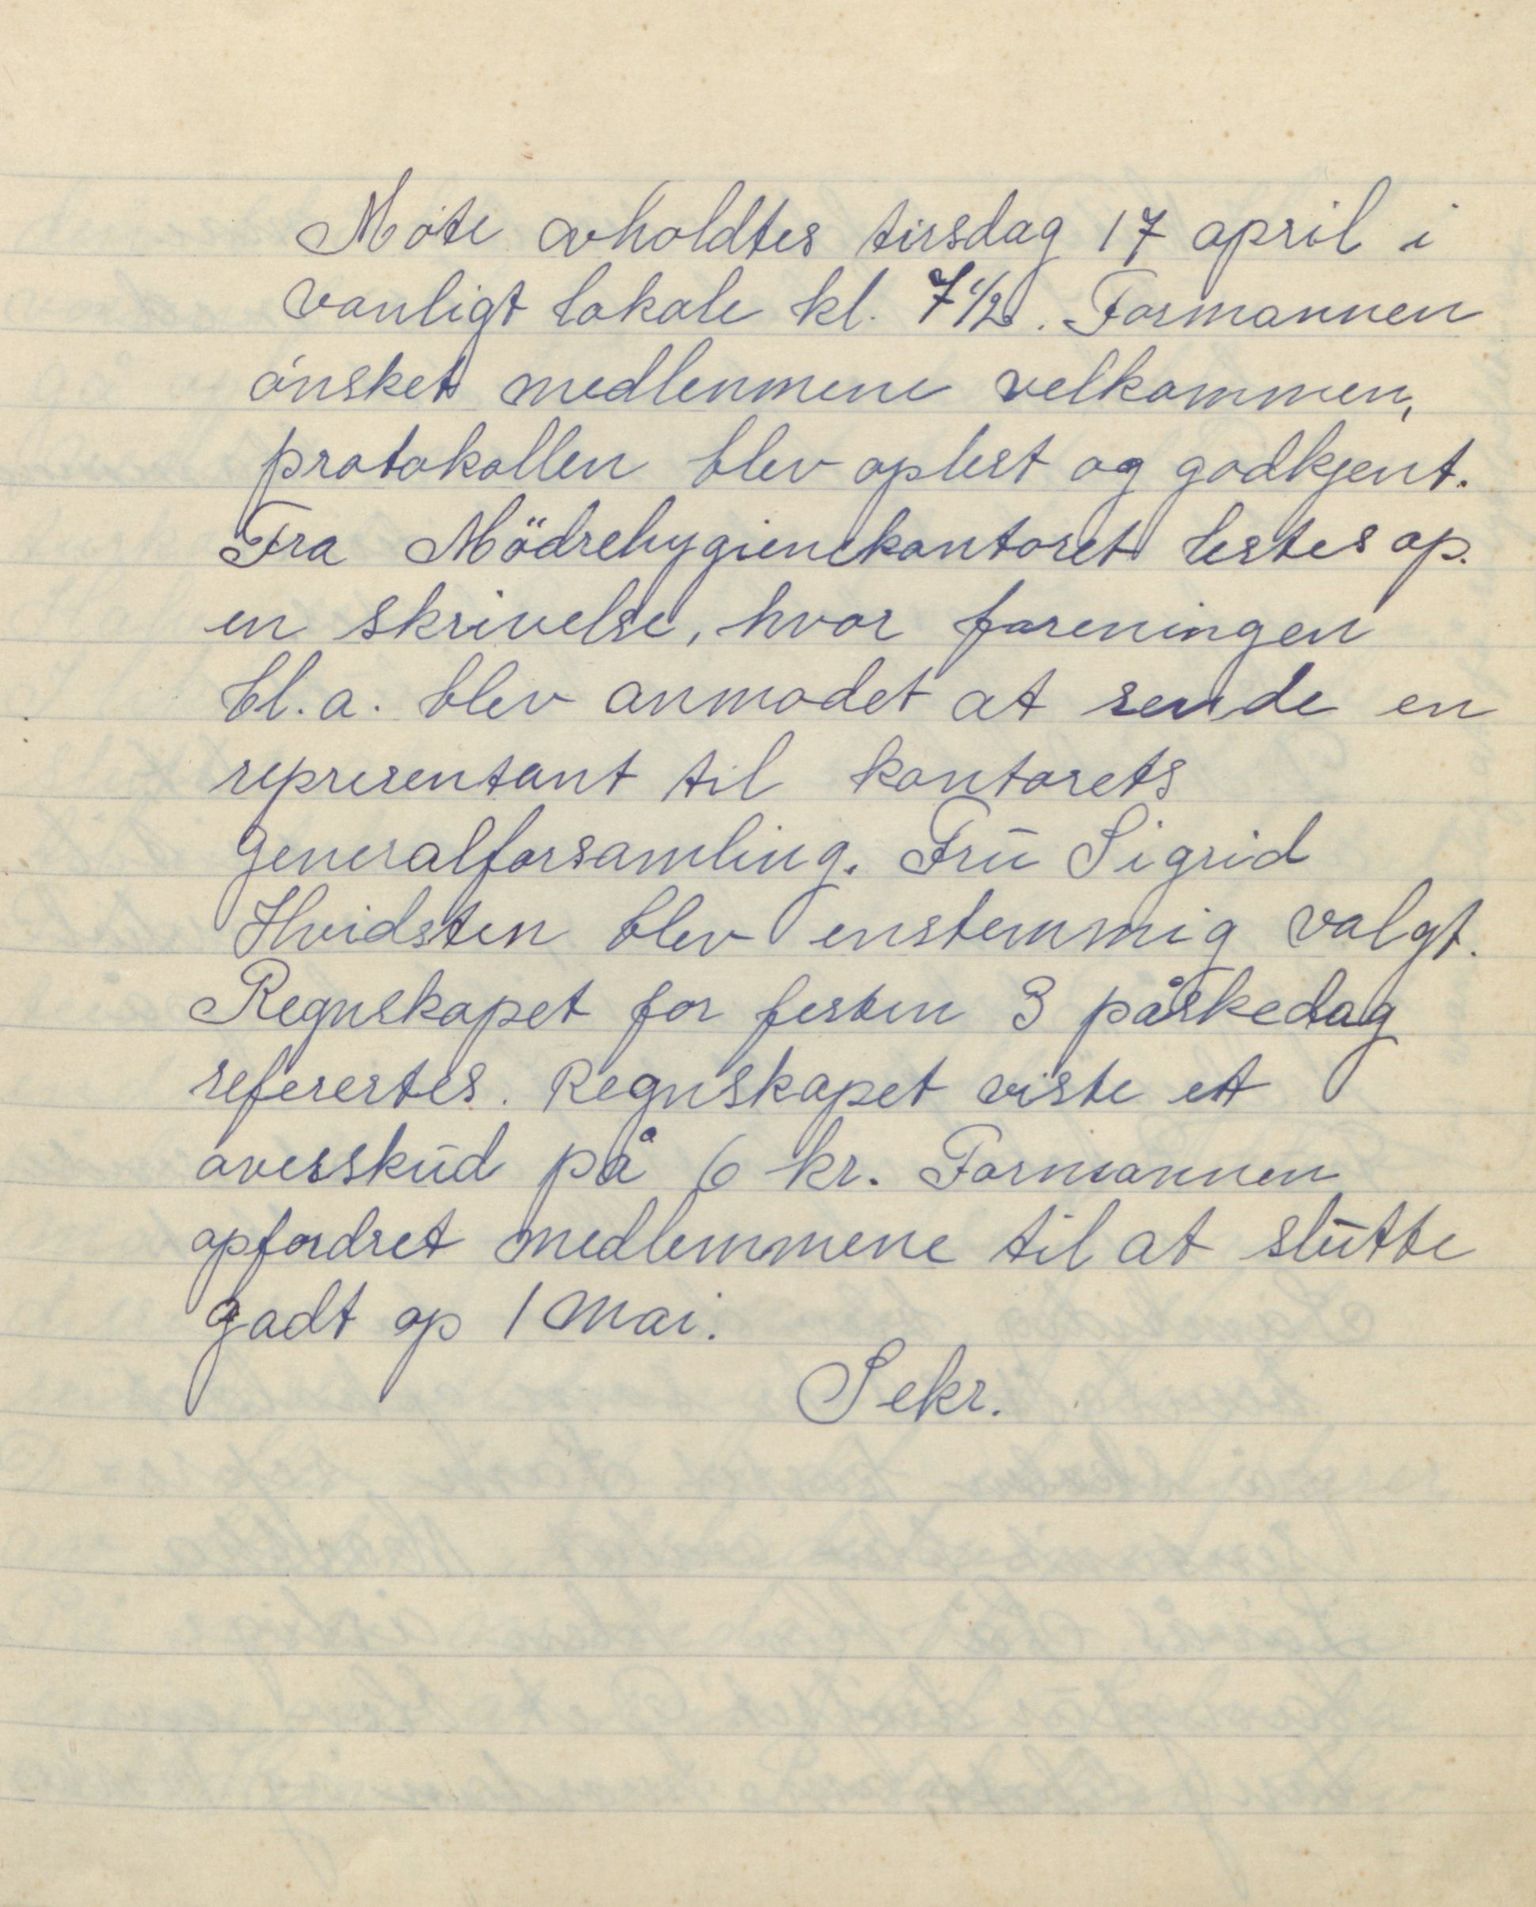 Møte avholdtes tirsdag 17 april i
vanligt lokale kl. 7 1/2. Formannen
ønsket medlemmene velkommen,
protokollen blev oplest og godkjent.
Fra Mödrehygienekontoret lestes op.
en skrivelse, hvor foreningen
bl.a. blev anmodet at sende en
representant til kontorets
generalforsamling. Frū Sigrid
Hvidsten blev enstemmig valgt.
Regnskapet for festen 3 påskedag
referertes. Regnskapet viste et
overskūd på 6 kr. Formannen
opfordret medlemmene til at slūtte
godt op 1 Mai.
Sekr.